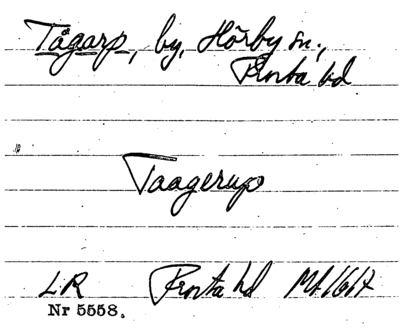 Tågarp, by, Hörby sn.,
Frosta hd
Taagerup
LR Frosta hd Mt 1617
Nr 5558.